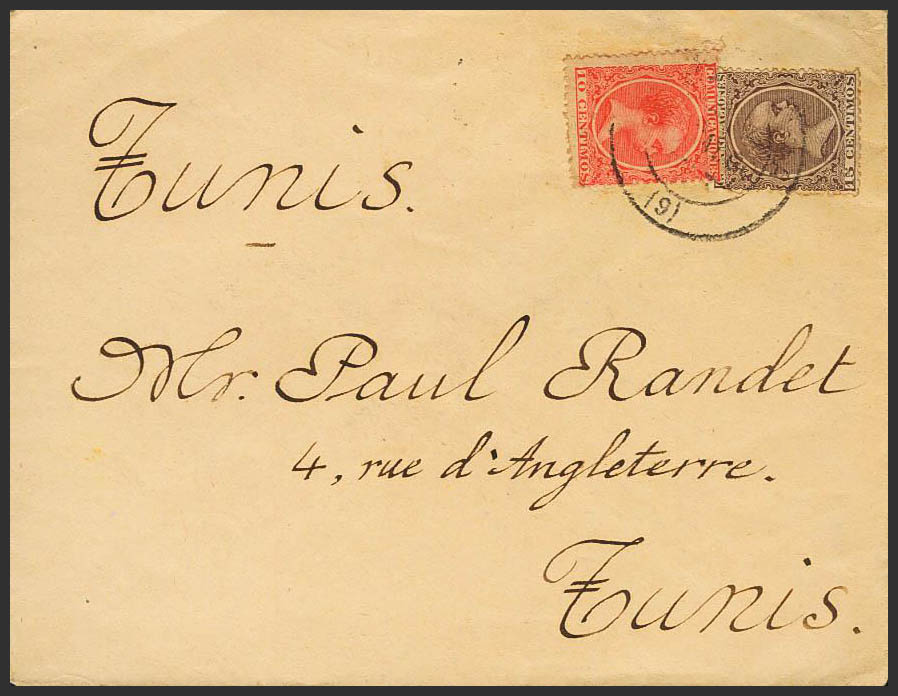 Tunis.
Mr. Paul Randet
4, rue d'Angleterre.
Tunis.
10 CENTIMOS
COMUNICACIONES
15 CENTIMOS
(6)